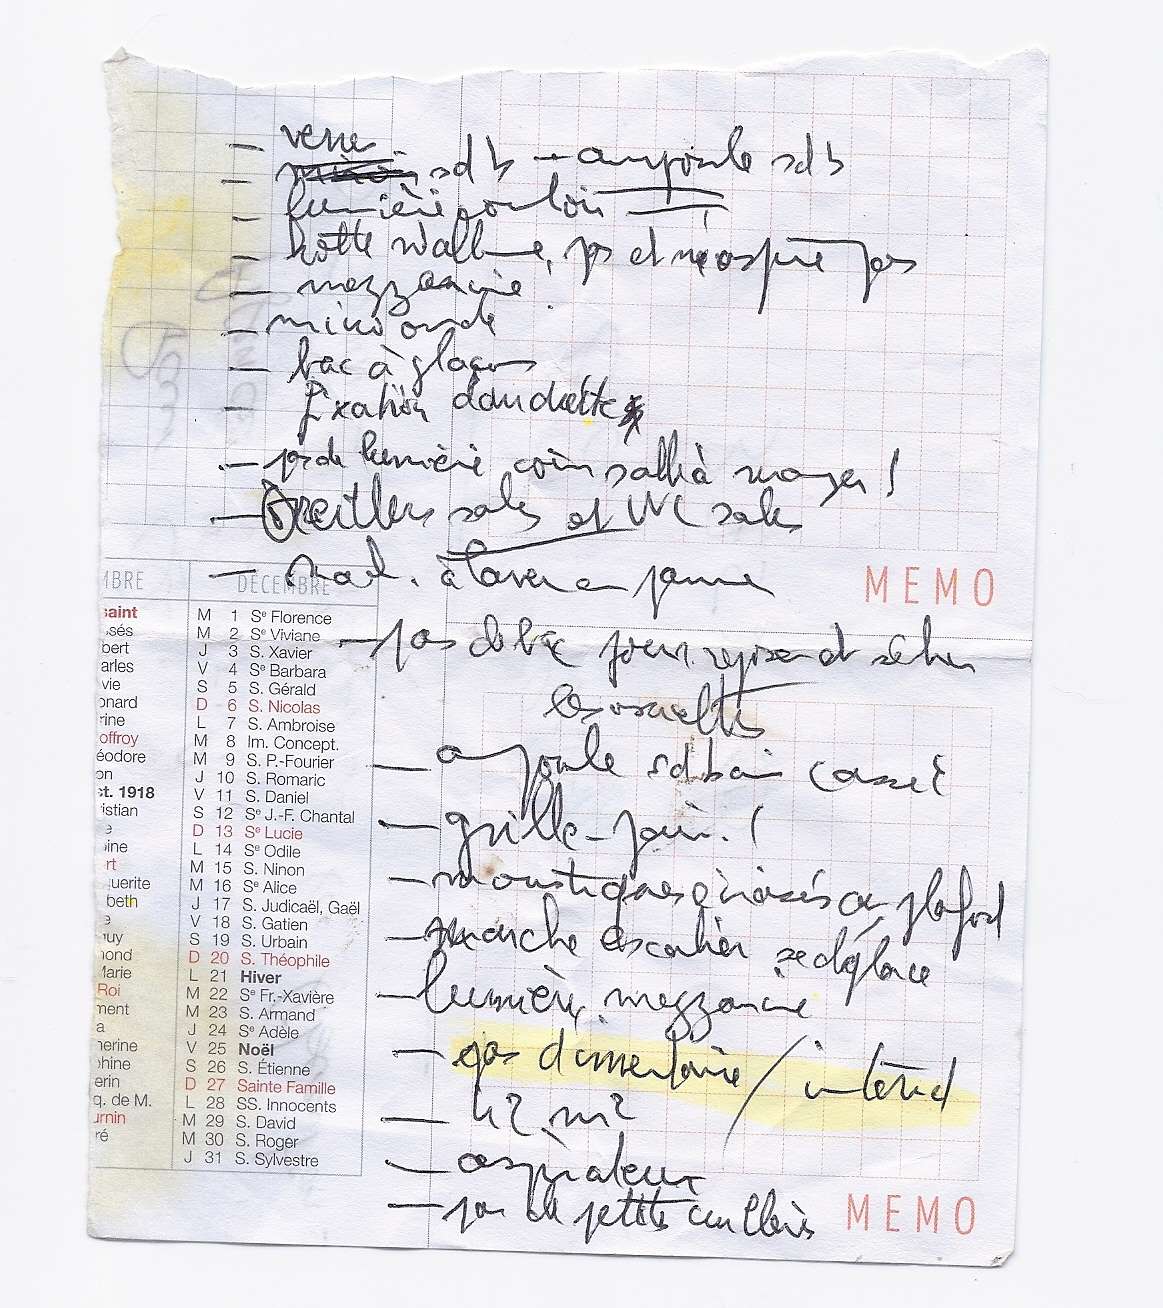 — verre
— sdb — ampoule sdb
— lumière
— hotte pas
— mezzanine
— micro onde
— bac à glaçons
— fixation douchette
— pas de lumière coin salle à manger !
— Oreillers sales et WC sales
— à laver en panne
MBRE DÉCEMBRE
MEMO
— pas de bac pour et sécher
les assiettes
— ampoule sdbain cassé
— grille-pain !
— moustiques écrasés au plafond
— marche escalier se déplace
— lumière mezzanine
— pas d'inventaire / internet
— 42 m2
— aspirateur
— pas de petite cuillères
MEMO
saint
sés
bert
arles
vie
onard
rine
offroy
éodore
on
ct. 1918
istian
e
oine
rt
uerite
beth
e
guy
mond
Marie
Roi
ment
a
herine
phine
erin
q. de M.
urnin
ré
M 1 Se Florence
M 2 Se Viviane
J 3 S. Xavier
V 4 Se Barbara
S 5 S. Gérald
D 6 S. Nicolas
L 7 S. Ambroise
M 8 Im. Concept.
M 9 S. P.-Fourier
J 10 S. Romaric
V 11 S. Daniel
S 12 Se J.-F. Chantal
D 13 Se Lucie
L 14 Se Odile
M 15 S. Ninon
M 16 Se Alice
J 17 S. Judicaël, Gaël
V 18 S. Gatien
S 19 S. Urbain
D 20 S. Théophile
L 21 Hiver
M 22 Se Fr.-Xavière
M 23 S. Armand
J 24 Se Adèle
V 25 Noël
S 26 S. Étienne
D 27 Sainte Famille
L 28 SS. Innocents
M 29 S. David
M 30 S. Roger
J 31 S. Sylvestre